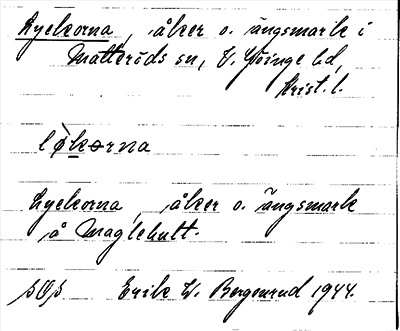 Lyekorna, åker o. ängsmark i
Matteröds sn, V. Göinge hd,
Krist. l.
lø̀korna
Lyekorna, åker o. ängsmark
å Maglehult.
Erik W. Bergenrud 1944.